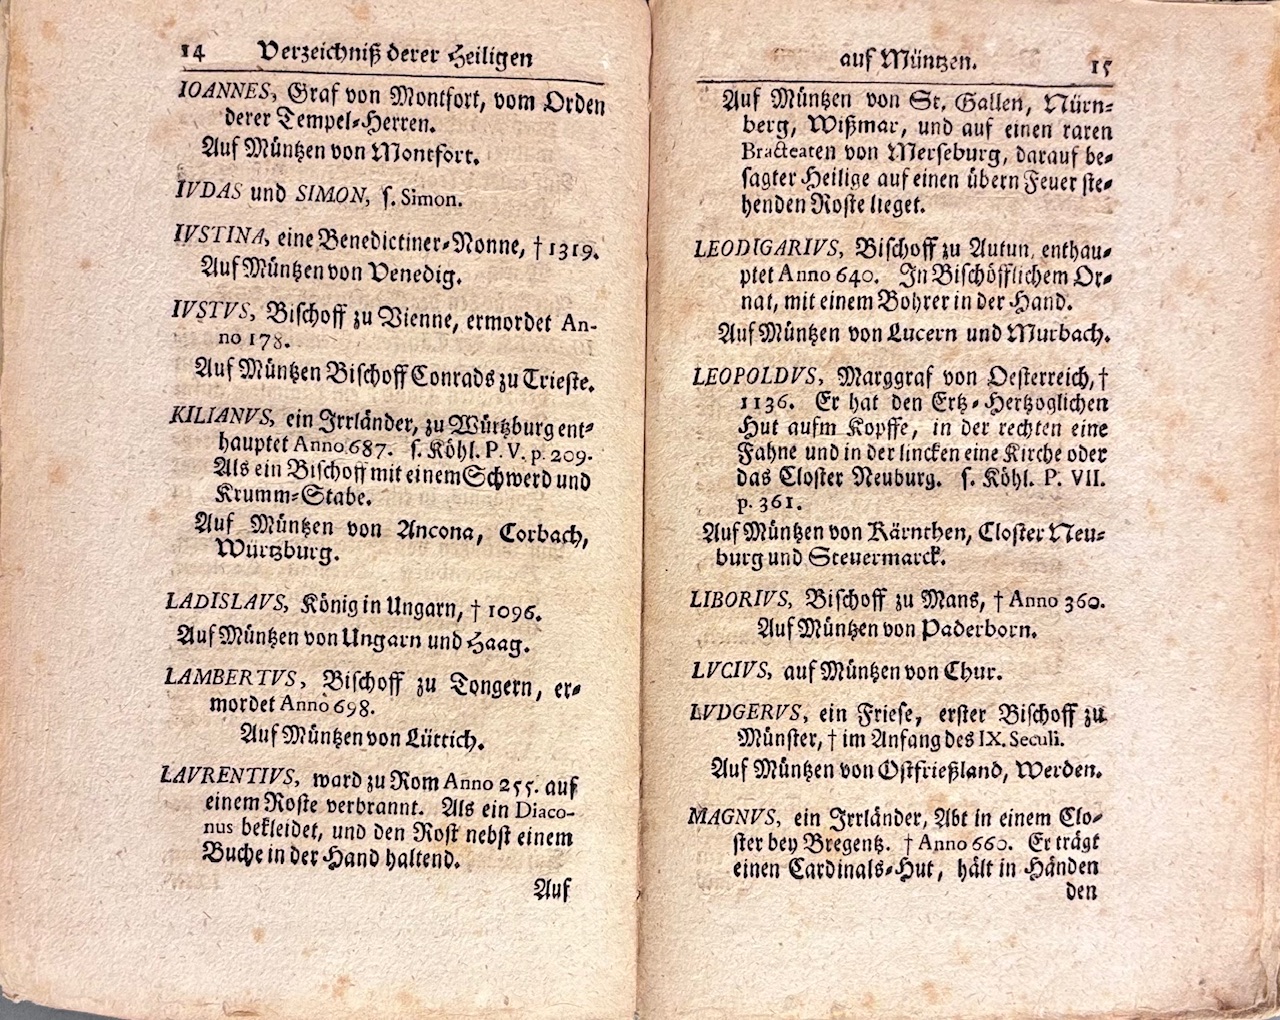 14 Verzeichniß derer Heiligen
IOANNES, Graf von Montfort, vom Orden
derer Tempel-Herren.
Auf Müntzen von Montfort.
IVDAS und SIMON, s. Simon.
IVSTINA, eine Benedictiner-Nonne, † 1319.
Auf Müntzen von Venedig.
IVSTVS, Bischoff zu Vienne, ermordet An-
no 178.
Auf Müntzen Bischoff Conrads zu Trieste.
KILIANVS, ein Irrländer, zu Würtzburg ent-
hauptet Anno 687. s. Köhl. P. V. p. 209.
Als ein Bischoff mit einem Schwerd und
Krumm-Stabe.
Auf Müntzen von Ancona, Corbach,
Würtzburg.
LADISLAVS, König in Ungarn, † 1096.
Auf Müntzen von Ungarn und Haag.
LAMBERTVS, Bischoff zu Tongern, er-
mordet Anno 698.
Auf Müntzen von Lüttich.
LAVRENTIVS, ward zu Rom Anno 255. auf
einem Roste verbrannt. Als ein Diaco-
nus bekleidet, und den Rost nebst einem
Buche in der Hand haltend.
Auf
auf Müntzen. 15
Auf Müntzen von St. Gallen, Nürn-
berg, Wißmar, und auf einen raren
Bracteaten von Merseburg, darauf be-
sagter Heilige auf einen übern Feuer ste-
henden Roste lieget.
LEODIGARIVS, Bischoff zu Autun, enthau-
ptet Anno 640. In Bischöfflichem Or-
nat, mit einem Bohrer in der Hand.
Auf Müntzen von Lucern und Murbach.
LEOPOLDVS, Marggraf von Oesterreich, †
1136. Er hat den Ertz-Hertzoglichen
Hut aufm Kopffe, in der rechten eine
Fahne und in der lincken eine Kirche oder
das Closter Neuburg. s. Köhl. P. VII.
p. 361.
Auf Müntzen von Kärnthen, Closter Neu-
burg und Steuermarck.
LIBORIVS, Bischoff zu Mans, † Anno 360.
Auf Müntzen von Paderborn.
LVCIVS, auf Müntzen von Chur.
LVDGERVS, ein Friese, erster Bischoff zu
Münster, † im Anfang des IX. Seculi.
Auf Müntzen von Ostfrießland, Werden.
MAGNVS, ein Irrländer, Abt in einem Clo-
ster bey Bregentz. † Anno 660. Er trägt
einen Cardinals-Hut, hält in Händen
den